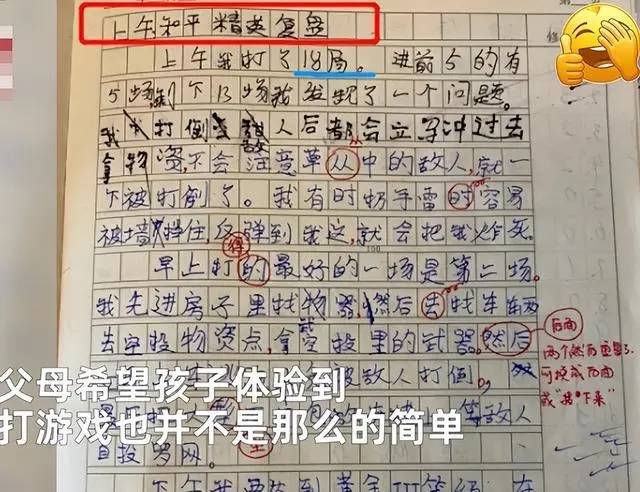 上午和平精英复盘
上午我打了18局。进前5的有
5场剩下13场我发现了一个问题。
我打倒敌人后都会立马冲过去
拿物资,不会注意草从中的敌人,就一
下被打倒了。我有时扔手雷时容易
被墙挡住,反弹到我这,就会把我炸死。
得
早上打的最好的一场是第二场。
我先进房子里找物器,然后去找车辆
去空投物资点,拿空投里的武器。然后
后面
两个然后重复了
可换成后面
或"接下来"
被敌人打倒,
父母希望孩子体验到
打游戏也并不是那么的简单
敌人
自投罗网。
下午我要达到黄金III等级,在